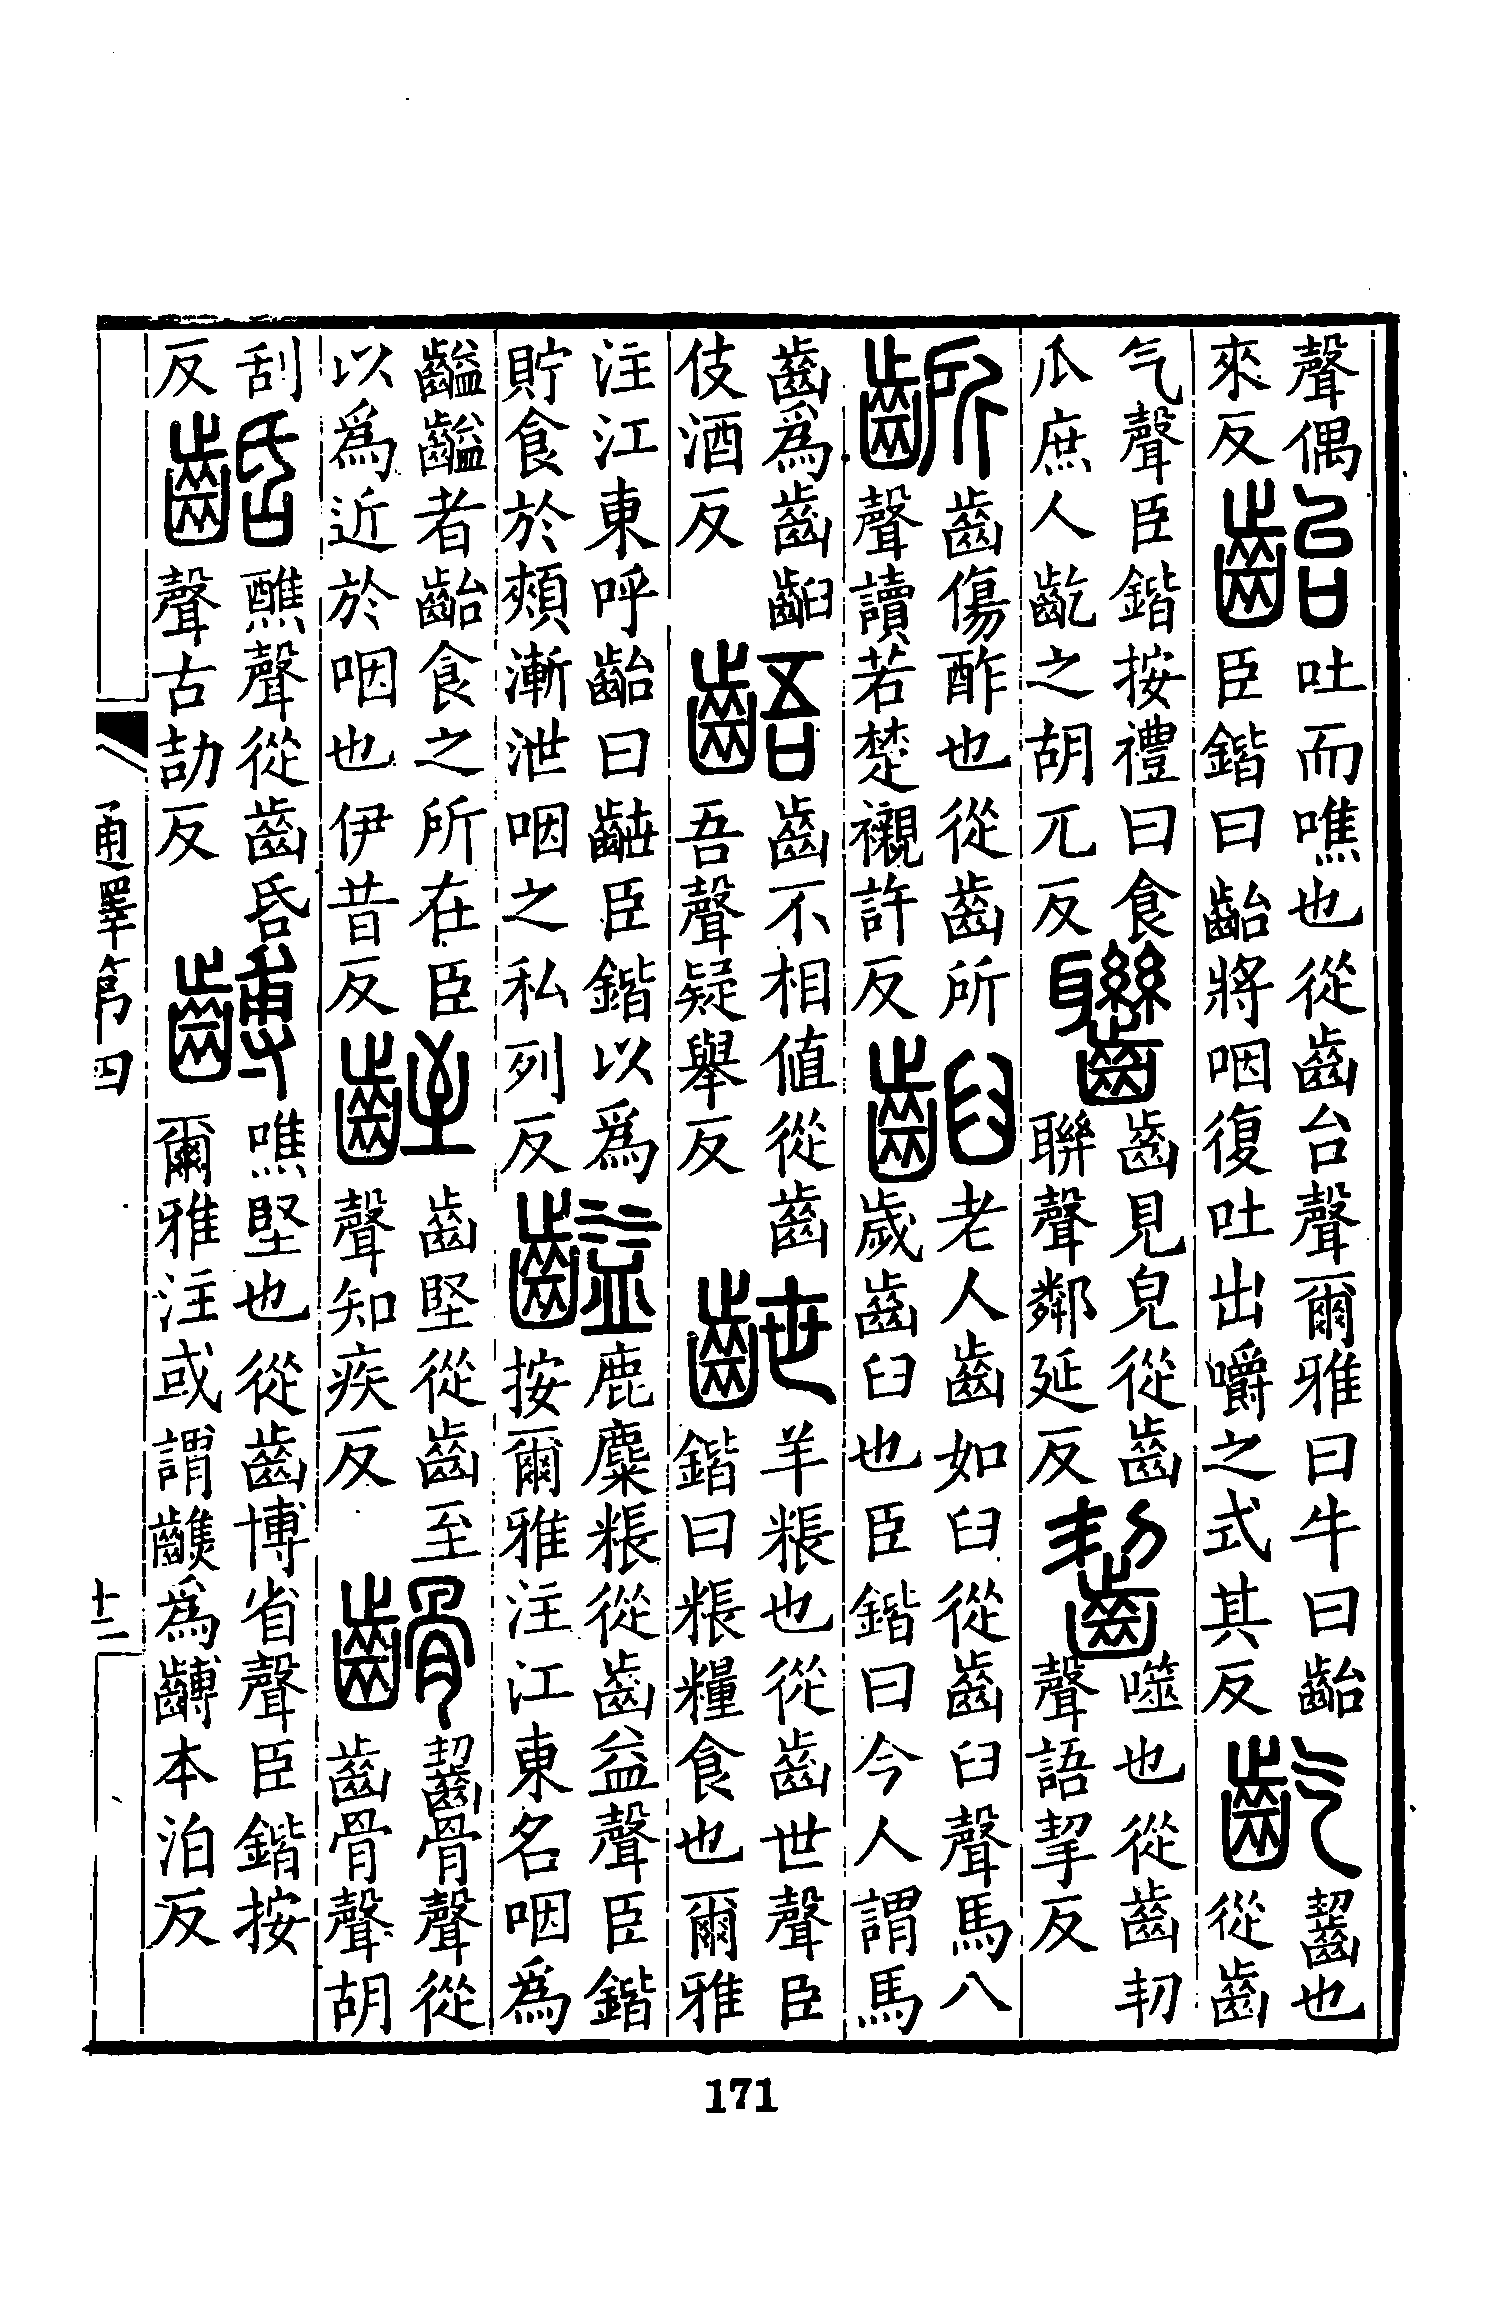 聲偶
來反
齝
吐而噍也從齒台聲爾雅曰牛曰齝
臣鍇曰齝將咽復吐出嚼之式其反
齕
齧也
從齒
气聲臣鍇按禮曰食
瓜庶人齕之胡兀反
齒見皃從齒
聯聲鄰延反
齧
噬也從齒㓞
聲語挈反
齭
齒傷酢也從齒所
聲讀若楚襯許反
齨
老人齒如臼從齒臼聲馬八
歲齒臼也臣鍇曰今人謂馬
齒為齒齨
伎酒反
齬
齒不相值從齒
吾聲疑舉反
齛
羊粻也從齒世聲臣
鍇曰粻糧食也爾雅
注江東呼齝曰齛臣鍇以為
貯食於頰漸泄咽之私列反
齸
鹿麋粻從齒益聲臣鍇
按爾雅注江東名咽為
齸齸者齝食之所在臣
以為近於咽也伊昔反
𪗻
齒堅從齒至
聲知疾反
䶤
齧骨聲從
齒骨聲胡
刮
反
醮聲從齒昏
聲古劼反
噍堅也從齒博省聲臣鍇按
爾雅注或謂為本泊反
通釋第四
十二
171